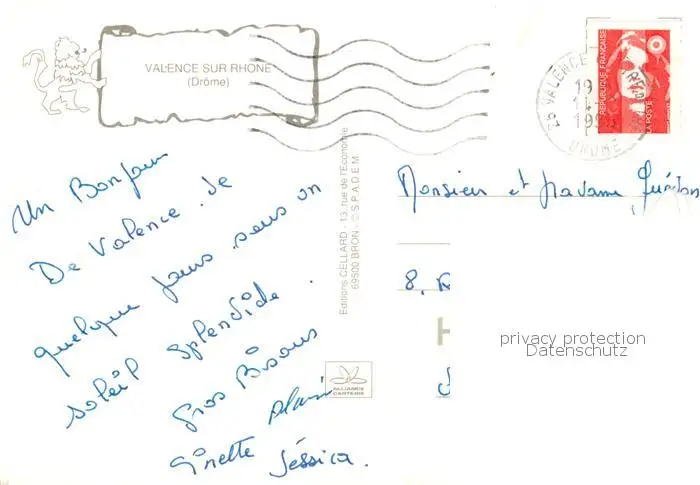 VALENCE SUR RHONE
(Drôme)
26 VALENCE
19
199
DROME
REPUBLIQUE FRANCAISE
LA POSTE
Un Bonjour
De Valence. de
quelque jours sous un
soleil splendide.
Gros Bisous
Ginette Alain
Jéssica.
Editions CELLARD - 13, rue de l'Economie
69500 BRON - © S.P.A.D.E.M
ALLIANCE
CARTERIE
Monsieur et Madame
8,
privacy protection
Datenschutz